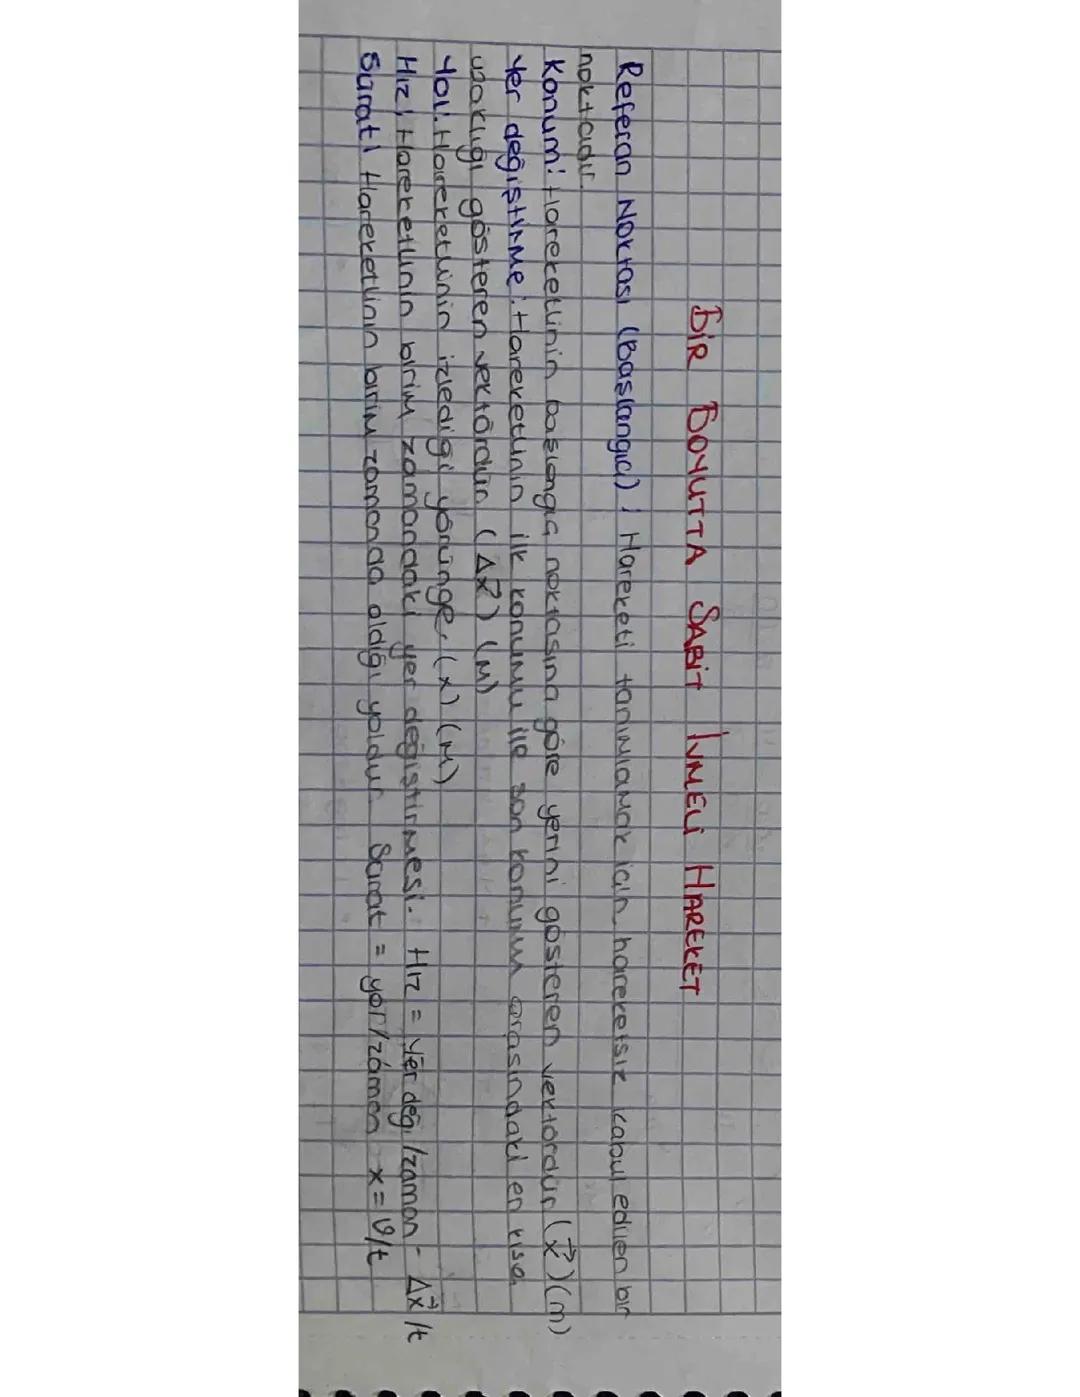 BİR BOYUTTA SABİT İVMELİ HAREKET
Referan Noktası (Başlangıcı): Hareketi tanımlamak için hareketsiz kabul edilen bir
noktadır.
Konum: Hareketlinin başlangıç noktasına göre yerini gösteren vektördür (x⃗) (m)
Yer değiştirme: Hareketlinin ilk konumu ile son konumu arasındaki en kısa
uzaklığı gösteren vektördür (Δx⃗) (m)
Yol: Hareketlinin izlediği yörünge. (x) (m)
Hız: Hareketlinin birim zamandaki yer değiştirmesi. Hız = yer değ./zaman - Δx⃗/t
Sürat: Hareketlinin birim zamanda aldığı yoldur. Sürat = yol/zaman x = v/t